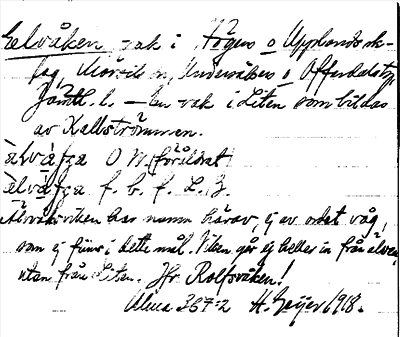 Helvåken, vak i Högen o Upplands sk-
fag, Mörsils sn, Undersåkers o Offerdals tg
Jämtl. l. — En vak i Liten som bildas
av Kallströmmen.
àlvàfɑ O W. (föråldrat)
èlvàfɑ f. b. f. L. Z.
viken har namn härav, ej av ordet våg,
som ej finns i detta mål. Viken går ej heller in från älven,
utan från Liten. Jfr Rolfsvåken!
Ulma 367:2 H. Geijer 1918.